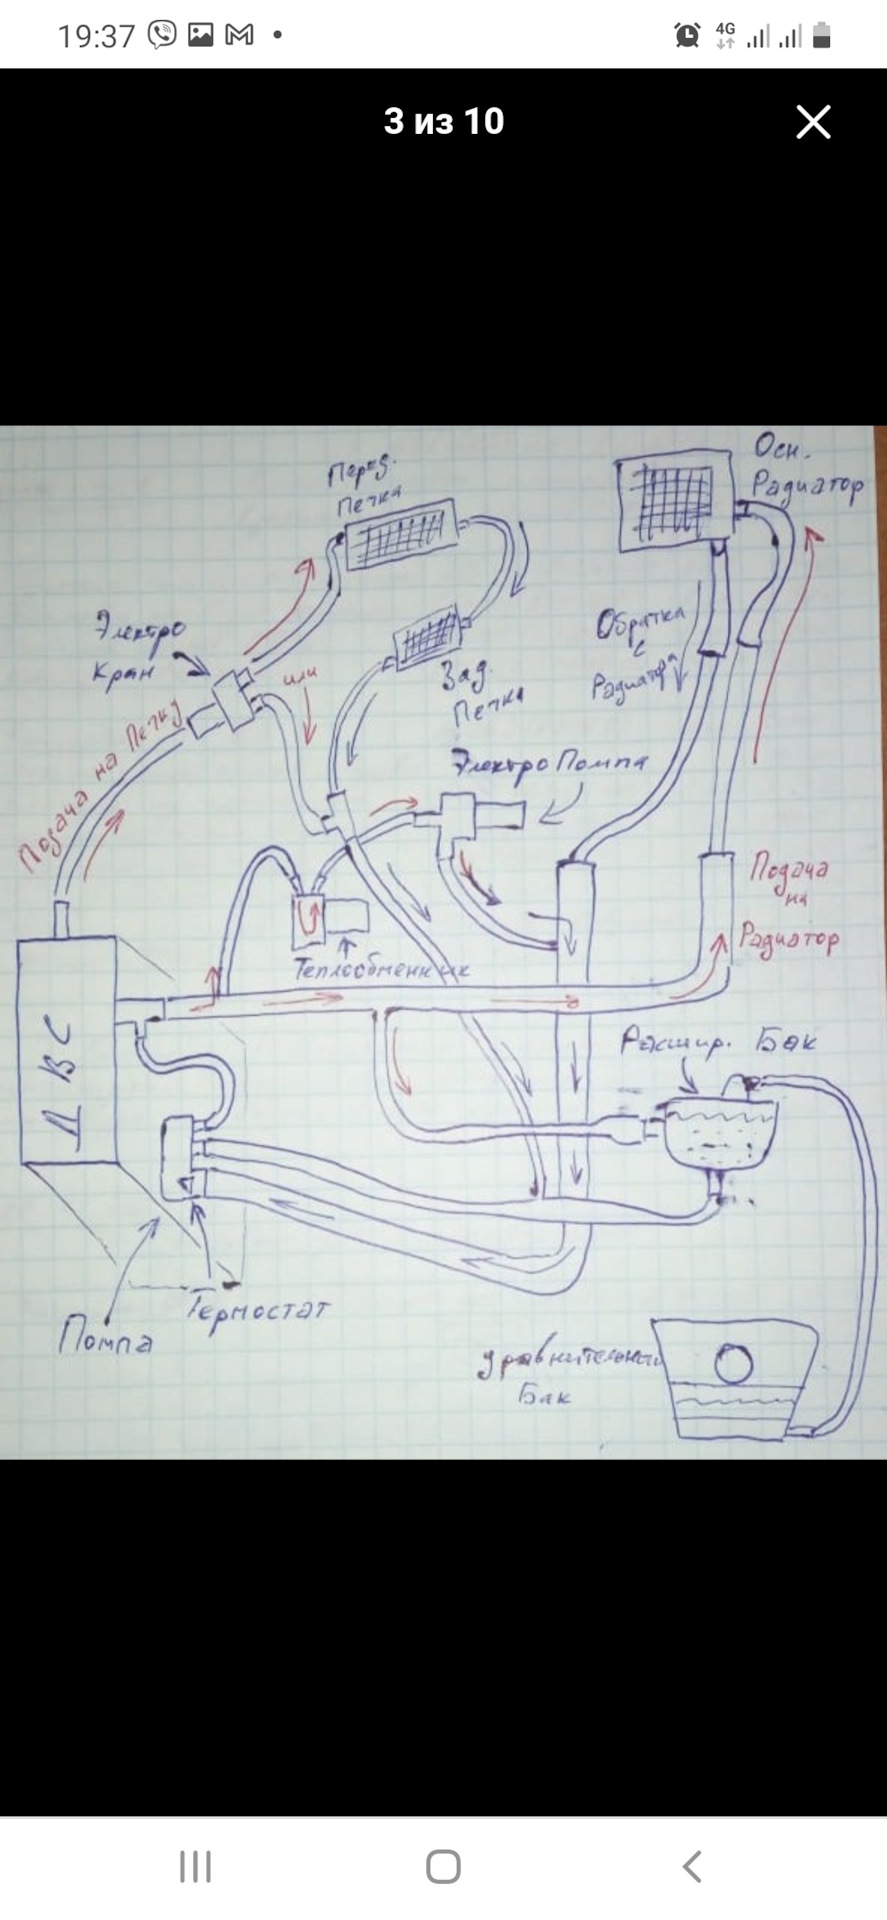 19:37
4G
3 из 10
Перед.
Печка
Осн.
Радиатор
Электро
Кран
или
Обратка
с
Радиатора
Зад.
Печка
Подача на Печку
Электро Помпа
Подача
на
Радиатор
Теплообменник
ДВС
Расшир. Бак
Термостат
Помпа
Уравнительный
Бак